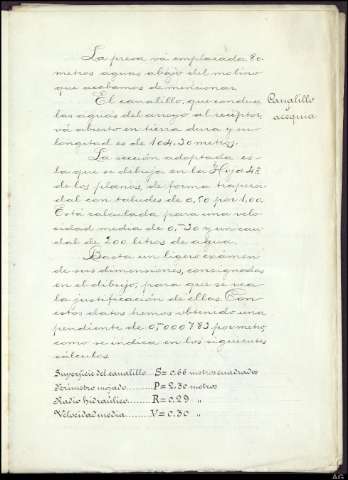 La presa vá emplazada 80
metros aguas abajo del molino
que acabamos de mencionar.
El canalillo, que conduce
las aguas del arroyo al receptor,
vá abierto en tierra dura y su
longitud es de 104.30 metros.
Canalillo
acequia
La sección adoptada es
la que se dibuja en la Hoja 4ª
de los planos, de forma trape
dal con taludes de 0,50 por 1,00.
Está calculada para una velo
cidad media de 0,30 y un cau
dal de 200 litros de agua.
Basta un ligero examen
de sus dimensiones, consignadas
en el dibujo, para que se vea
la justificación de ellas. Con
estos datos hemos obtenido una
pendiente de 0,000783 por metro
como se indica en los siguientes
cálculos
Superficie del canalillo S = 0.66 metros cuadrados
Perímetro mojado P = 2.30 metros
Radio hidráulico R = 0.29 "
Velocidad media V = 0.30 "